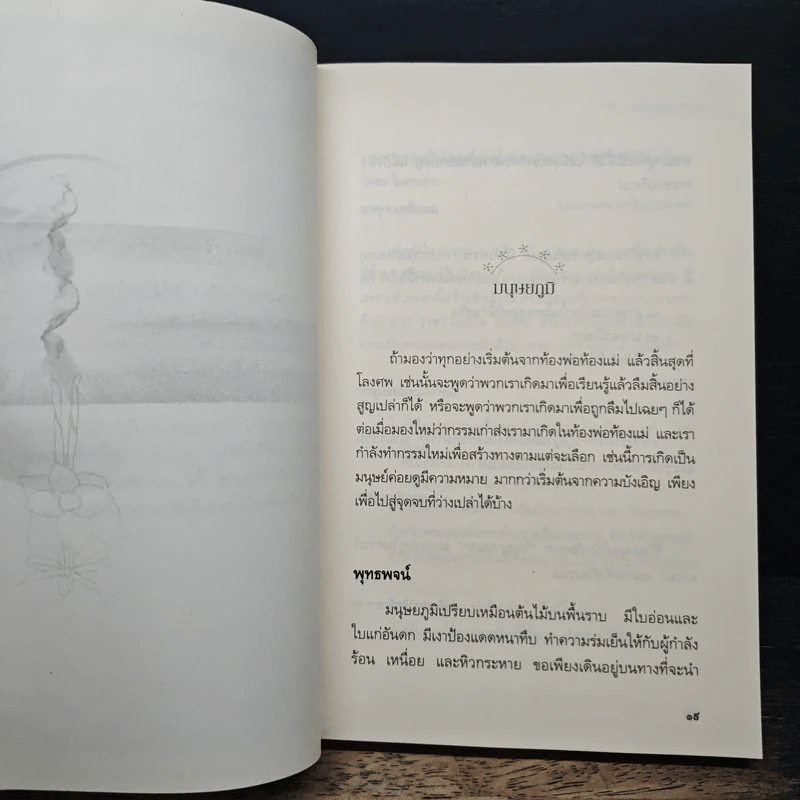 มนุษยภูมิ
ถ้ามองว่าทุกอย่างเริ่มต้นจากท้องพ่อท้องแม่ แล้วสิ้นสุดที่
โลงศพ เช่นนั้นจะพูดว่าพวกเราเกิดมาเพื่อเรียนรู้แล้วลืมสิ้นอย่าง
สูญเปล่าก็ได้ หรือจะพูดว่าพวกเราเกิดมาเพื่อถูกลืมไปเฉยๆ ก็ได้
ต่อเมื่อมองใหม่ว่ากรรมเก่าส่งเรามาเกิดในท้องพ่อท้องแม่ และเรา
กำลังทำกรรมใหม่เพื่อสร้างทางตามแต่จะเลือก เช่นนี้การเกิดเป็น
มนุษย์ค่อยดูมีความหมาย มากกว่าเริ่มต้นจากความบังเอิญ เพียง
เพื่อไปสู่จุดจบที่ว่างเปล่าได้บ้าง
พุทธพจน์
มนุษยภูมิเปรียบเหมือนต้นไม้บนพื้นราบ มีใบอ่อนและ
ใบแก่อันดก มีเงาป้องแดดหนาทึบ ทำความร่มเย็นให้กับผู้กำลัง
ร้อน เหนื่อย และหิวกระหาย ขอเพียงเดินอยู่บนทางที่จะนำ
๑๙